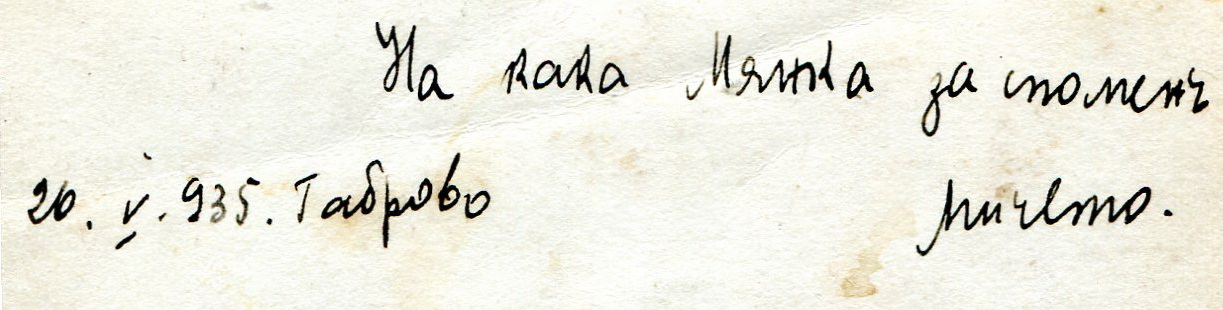 На кака Мянка за споменъ
20. V. 935. Габрово Мичето.